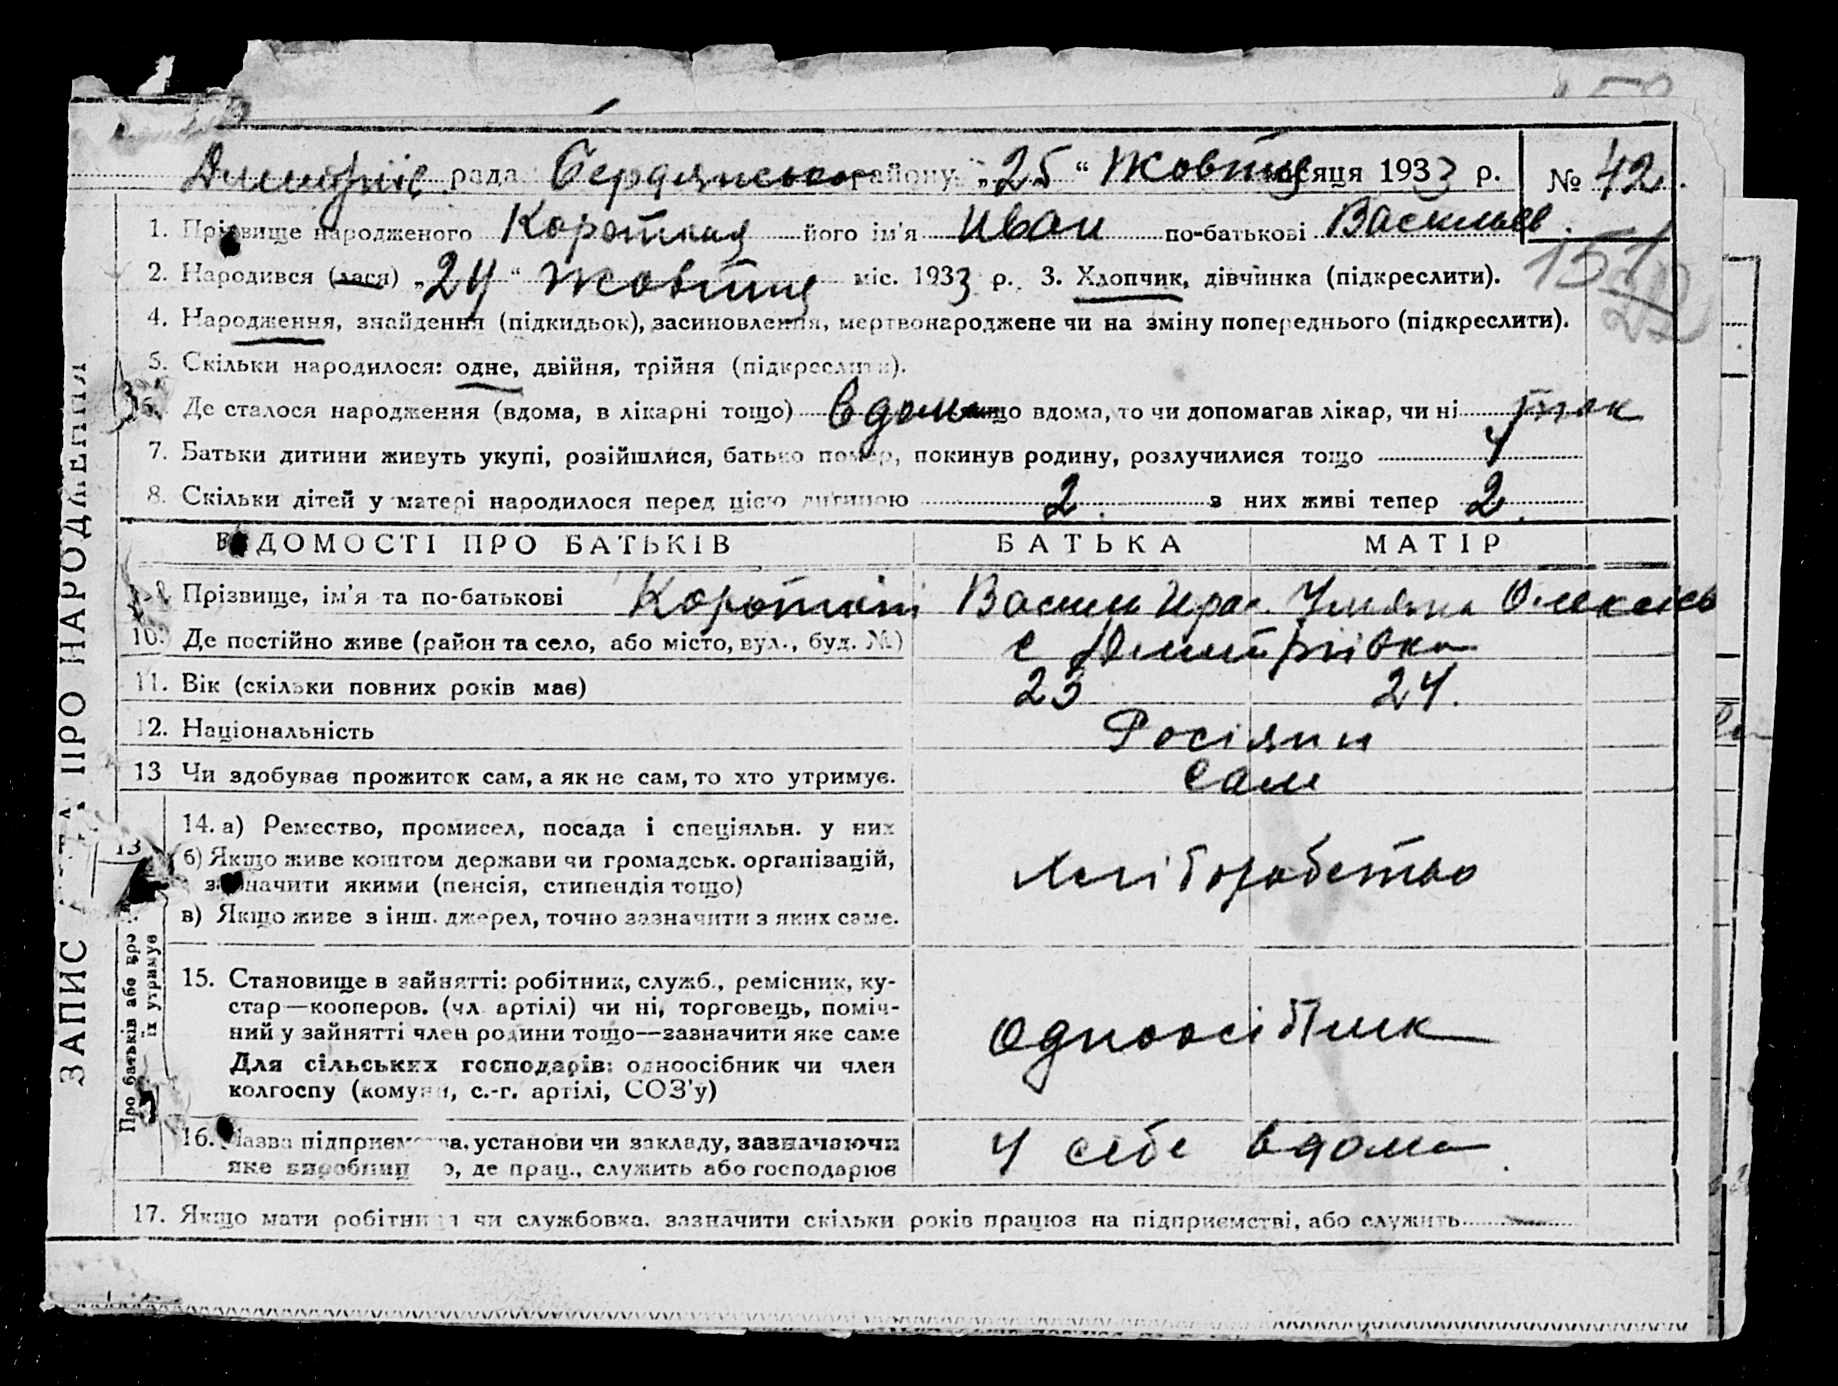 Димитріїв. рада Бердянського району „25“ Жовтня місяця 1933 р. № 42.
1. Прізвище народженого Короткий його ім'я Иван по-батькові Васильев.
151
2. Народився (лася) „24“ Жовтня міс. 1933 р. 3. Хлопчик, дівчинка (підкреслити).
4. Народження, знайдення (підкидьок), засиновлення, мертвонароджене чи на зміну попереднього (підкреслити).
5. Скільки народилося: одне, двійня, трійня (підкреслити).
6. Де сталося народження (вдома, в лікарні тощо) вдома якщо вдома, то чи допомагав лікар, чи ні так
7. Батьки дитини живуть укупі, розійшлися, батько помер, покинув родину, розлучилися тощо
8. Скільки дітей у матері народилося перед цією дитиною 2. з них живі тепер 2.
ВІДОМОСТІ ПРО БАТЬКІВ БАТЬКА МАТІР
Прізвище, ім'я та по-батькові Короткий Васил Ульяна Олексієв
10. Де постійно живе (район та село, або місто, вул., буд. №) с Димитріївка
11. Вік (скільки повних років має) 23 24.
12. Національність Росіяни
13 Чи здобуває прожиток сам, а як не сам, то хто утримує. Сам
14. а) Ремество, промисел, посада і спеціяльн. у них
б) Якщо живе коштом держави чи громадськ. організацій,
зазначити якими (пенсія, стипендія тощо) хліборобство
в) Якщо живе з інш. джерел, точно зазначити з яких саме.
15. Становище в зайнятті: робітник, служб., ремісник, ку-
стар—кооперов. (чл. артілі) чи ні, торговець, поміч-
ний у зайнятті член родини тощо—зазначити яке саме
Для сільських господарів: одноосібник чи член
колгоспу (комуни, с.-г. артілі, СОЗ'у) одноосібник
16. Назва підприємства, установи чи закладу, зазначаючи
яке виробництво, де прац., служить або господарює У себе вдома.
17. Якщо мати робітниця чи службовка, зазначити скільки років працює на підприємстві, або служить
ЗАПИС АКТА ПРО НАРОДЖЕННЯ
Про батьків або хто
їх утримує
13